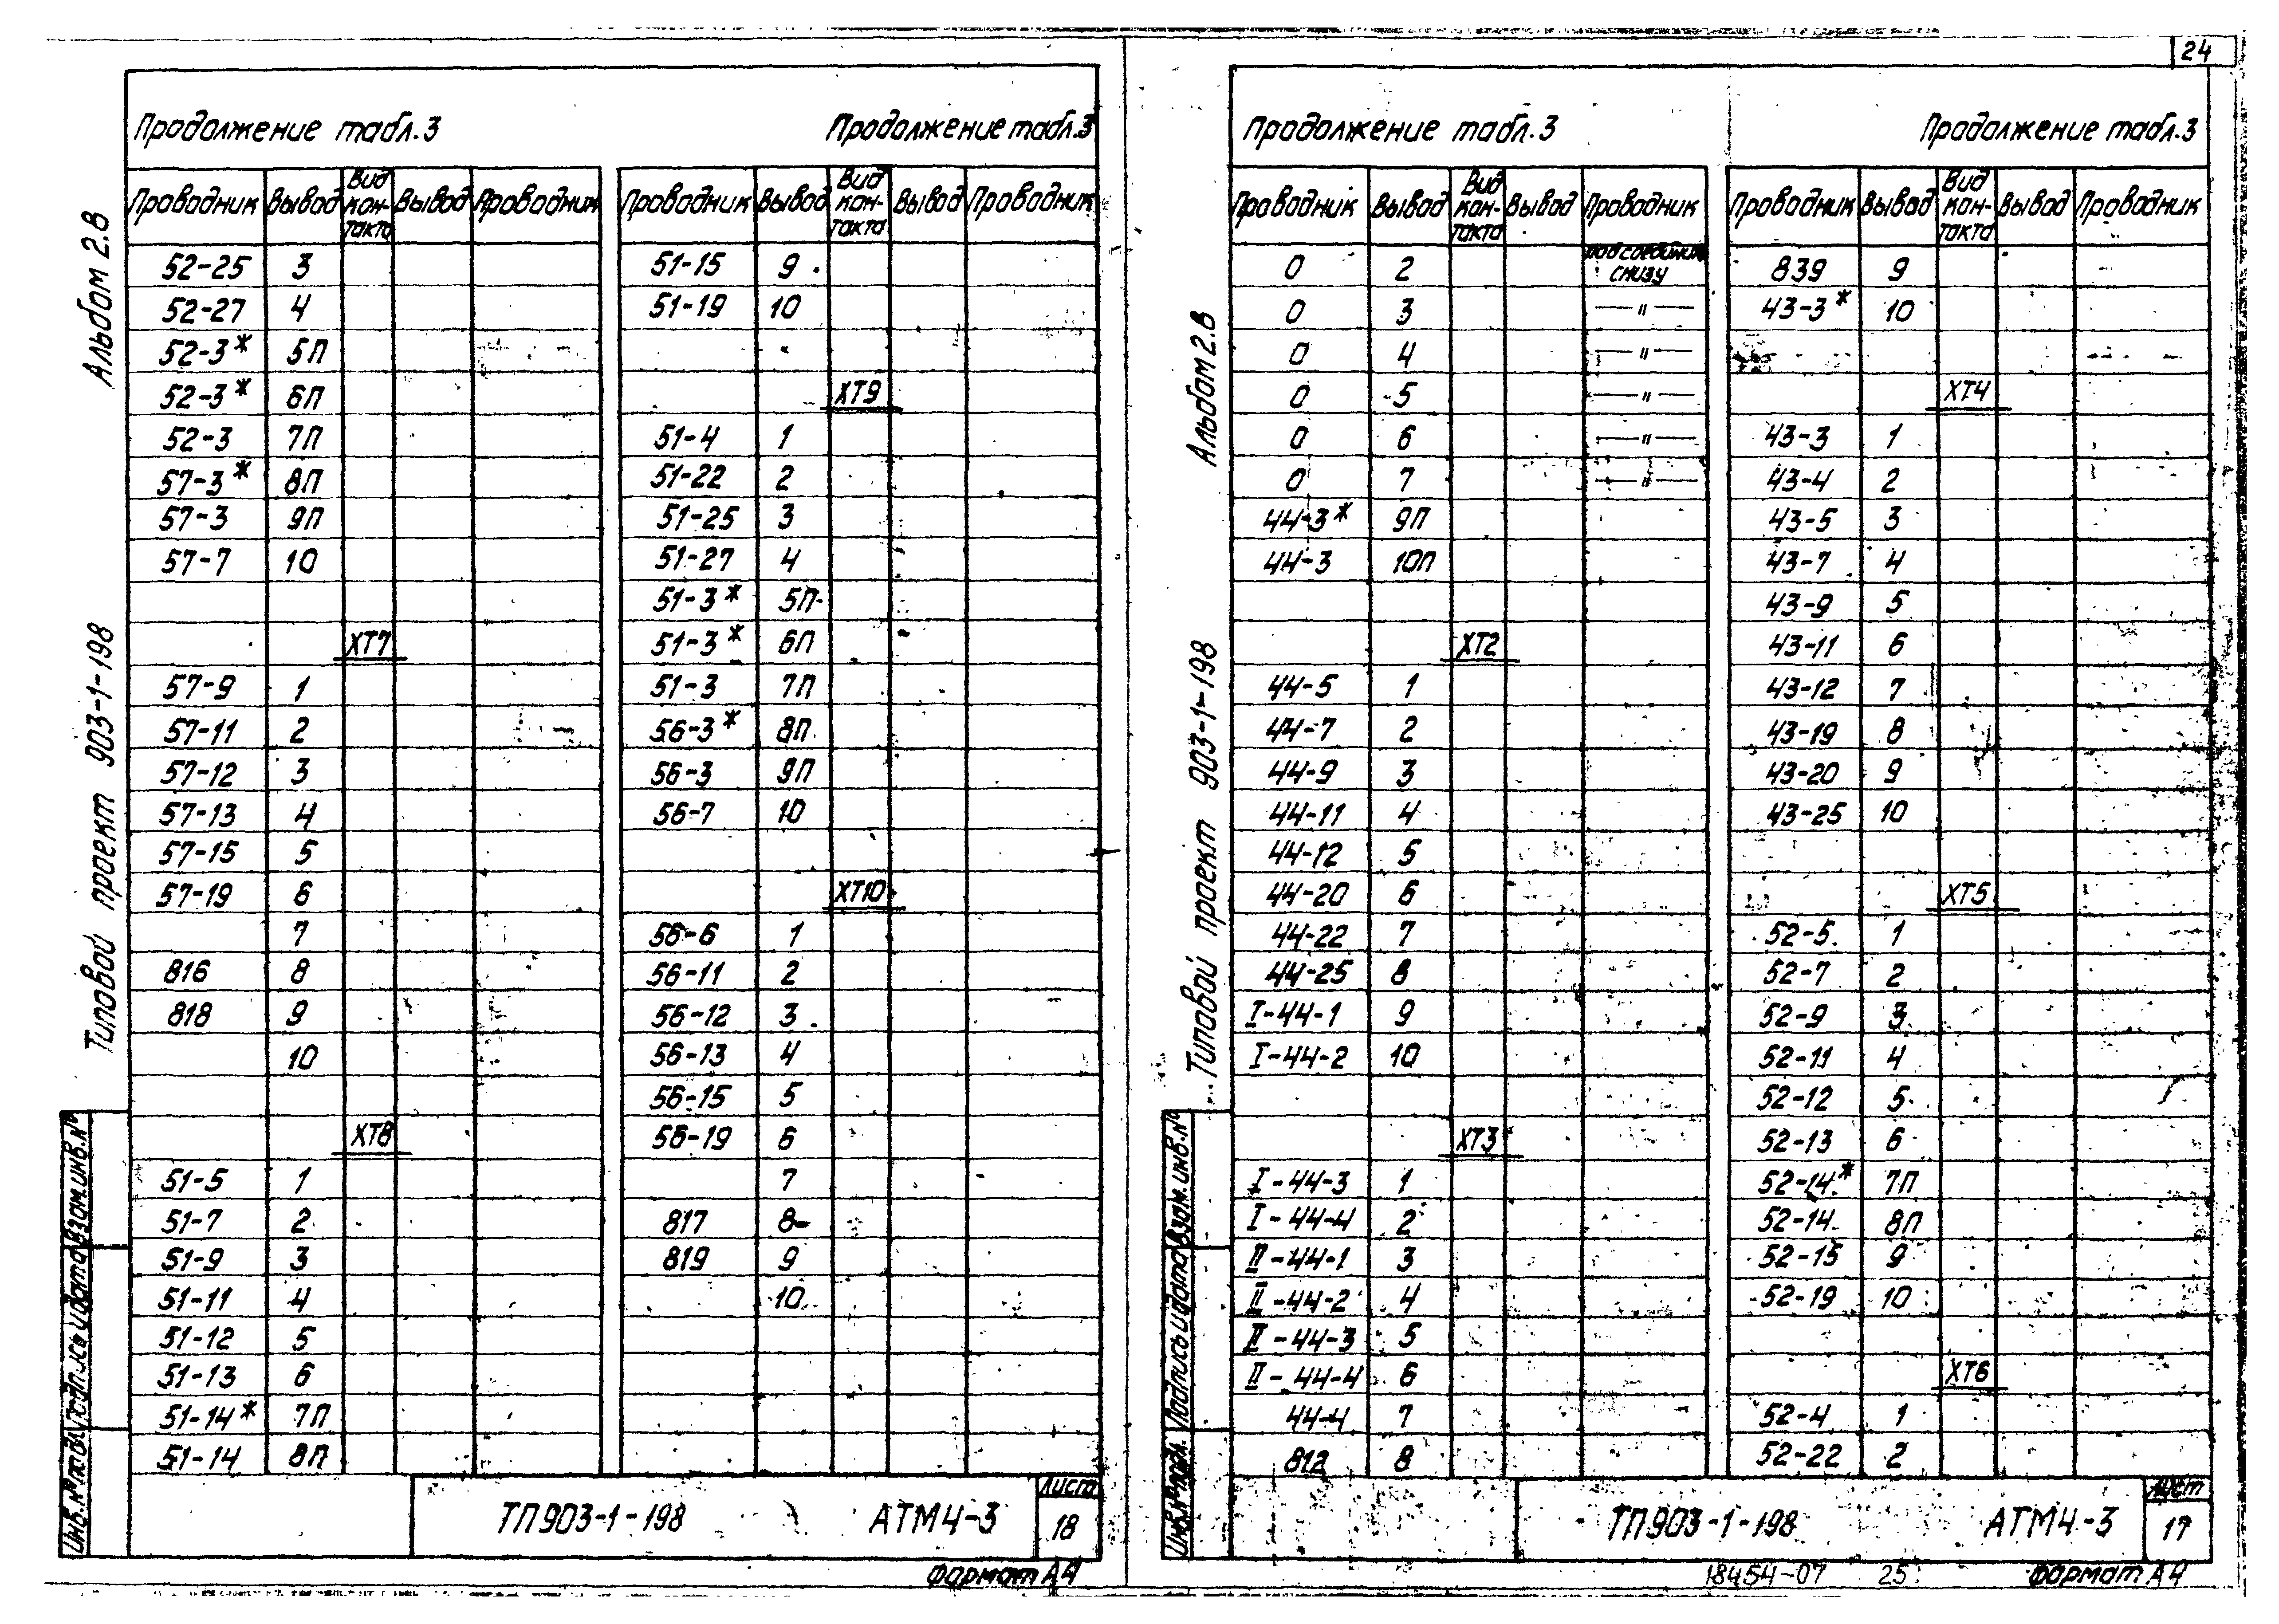 24
Альбом 2.8
Типовой проект 903-1-198
Взам.инв.№
Подпись и дата
Инв.№ подл.
Продолжение табл.3
Проводник Вывод Вид контакта Вывод Проводник
52-25 3
52-27 4
52-3* 5П
52-3* 6П
52-3 7П
57-3* 8П
57-3 9П
57-7 10
ХТ7
57-9 1
57-11 2
57-12 3
57-13 4
57-15 5
57-19 6
7
816 8
818 9
10
ХТ8
51-5 1
51-7 2
51-9 3
51-11 4
51-12 5
51-13 6
51-14* 7П
51-14 8П
Продолжение табл.3
Проводник Вывод Вид контакта Вывод Проводник
51-15 9
51-19 10
ХТ9
51-4 1
51-22 2
51-25 3
51-27 4
51-3* 5П
51-3* 6П
51-3 7П
56-3* 8П
56-3 9П
56-7 10
ХТ10
56-6 1
56-11 2
56-12 3
56-13 4
56-15 5
56-19 6
7
817 8
819 9
10
ТП903-1-198 АТМ4-3
Лист
18
Формат А4
Альбом 2.8
Типовой проект 903-1-198
Взам.инв.№
Подпись и дата
Инв.№ подл.
Продолжение табл.3
Проводник Вывод Вид контакта Вывод Проводник
0 2 подсоединить снизу
0 3 —"—
0 4 —"—
0 5 —"—
0 6 —"—
0 7 —"—
44-3* 9П
44-3 10П
ХТ2
44-5 1
44-7 2
44-9 3
44-11 4
44-12 5
44-20 6
44-22 7
44-25 8
I-44-1 9
I-44-2 10
ХТ3
I-44-3 1
I-44-4 2
II-44-1 3
II-44-2 4
II-44-3 5
II-44-4 6
44-4 7
812 8
Продолжение табл.3
Проводник Вывод Вид контакта Вывод Проводник
839 9
43-3* 10
ХТ4
43-3 1
43-4 2
43-5 3
43-7 4
43-9 5
43-11 6
43-12 7
43-19 8
43-20 9
43-25 10
ХТ5
52-5 1
52-7 2
52-9 3
52-11 4
52-12 5
52-13 6
52-14* 7П
52-14 8П
52-15 9
52-19 10
ХТ6
52-4 1
52-22 2
ТП903-1-198 АТМ4-3
Лист
17
18454-07 25 Формат А4